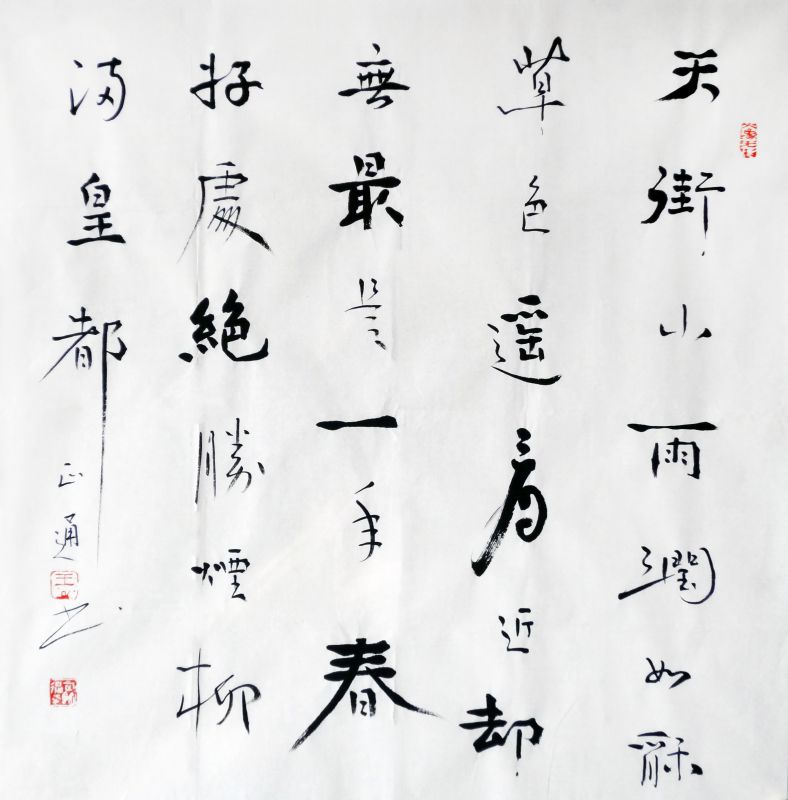 天街小雨潤如酥
草色遥看近却
無最是一年春
好處絶勝煙柳
满皇都
正通书